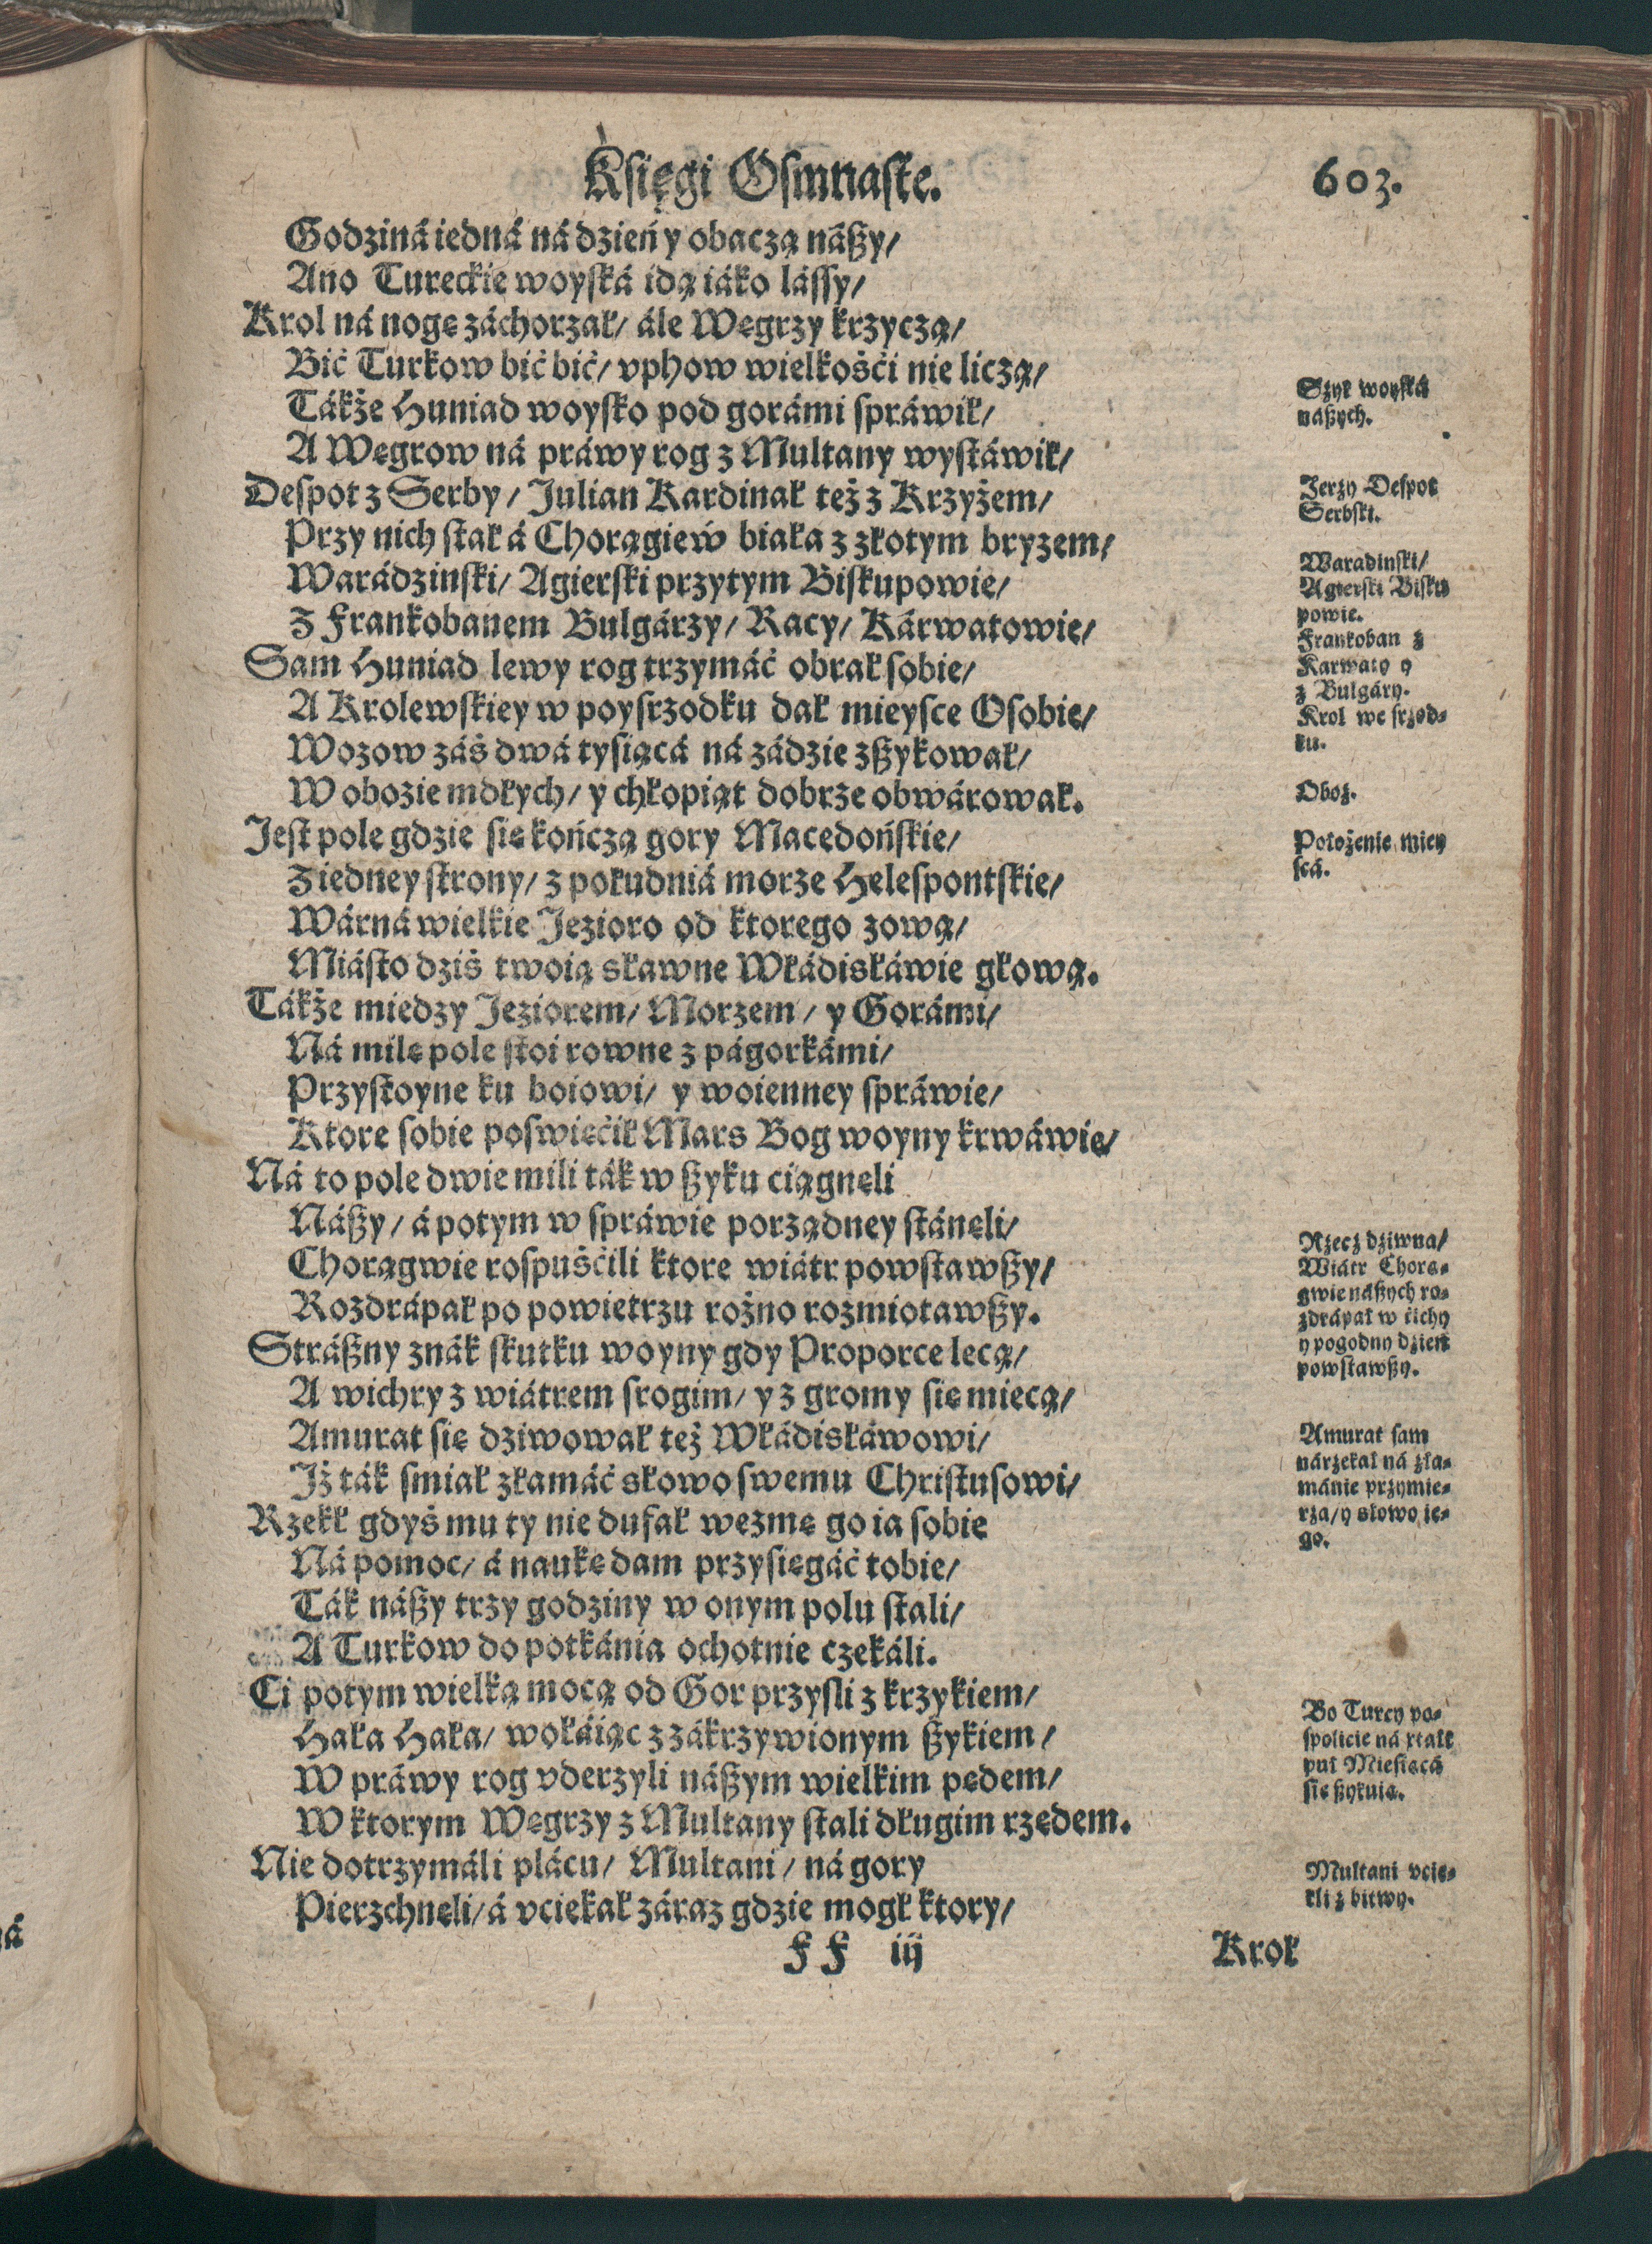 Księgi Osmnaste.
603.
Godziná iedná ná dzień y obaczą nászy/
Ano Tureckie woyská idą iáko lássy/
Krol ná nogę záchorzał/ ále Węgrzy krzyczą/
Bić Turkow bić bić/ vphow wielkośći nie liczą/
Tákże Huniad woysko pod gorámi spráwił/
A Węgrow ná práwy rog z Multany wystáwił/
Despot z Serby/ Julian Kardinał też z Krzyżem/
Przy nich stał á Chorągiew biała z złotym bryzem/
Warádzinski/ Agierski przytym Biskupowie/
Z Frankobanem Bulgárzy/ Racy/ Kárwatowie/
Sam Huniad lewy rog trzymáć obrał sobie/
A Krolewskiey w poysrzodku dał mieysce Osobie/
Wozow záś dwá tysiącá ná zádzie zszykował/
W obozie mdłych/ y chłopiąt dobrze obwárował.
Jest pole gdzie się kończą gory Macedońskie/
Z iedney strony/ z południá morze Helespontskie/
Wárná wielkie Jezioro od ktorego zową/
Miásto dziś twoią sławne Włádisłáwie głową.
Tákże miedzy Jeziorem/ Morzem/ y Gorámi/
Ná milę pole stoi rowne z págorkámi/
Przystoyne ku boiowi/ y woienney spráwie/
Ktore sobie poswięćił Mars Bog woyny krwáwie/
Ná to pole dwie mili ták w szyku ciągnęli
Nászy/ á potym w spráwie porządney stánęli/
Chorągwie rospuśćili ktore wiátr powstawszy/
Rozdrápał po powietrzu rożno rozmiotawszy.
Strászny znák skutku woyny gdy Proporce lecą/
A wichry z wiátrem srogim/ y z gromy się miecą/
Amurat się dziwował też Włádisłáwowi/
Iż ták smiał złamáć słowo swemu Christusowi/
Rzekł gdyś mu ty nie dufał wezmę go ia sobie
Ná pomoc/ á naukę dam przysięgáć tobie/
Ták nászy trzy godziny w onym polu stali/
A Turkow do potkánia ochotnie czekáli.
Ci potym wielką mocą od Gor przysli z krzykiem/
Hała Hała/ wołáiąc z zákrzywionym szykiem/
W práwy rog vderzyli nászym wielkim pędem/
W ktorym Węgrzy z Multany stali długim rzędem.
Nie dotrzymáli plácu/ Multani/ ná gory
Pierzchnęli/ á vciekał záraz gdzie mogł ktory/
Ff iij
Krol
Szyk woyská
nászych.
Jerzy Despot
Serbski.
Waradinski/
Agierski Bisku
powie.
Frankoban z
Karwaty y
z Bulgáry.
Krol we srzod-
ku.
Oboz.
Położenie miey
scá.
Rzecz dziwna/
Wiátr Chorą-
gwie nászych ro-
zdrápał w ćichy
y pogodny dzień
powstawszy.
Amurat sam
nárzekał ná zła-
mánie przymie-
rza/ y słowo ie-
go.
Bo Turcy po-
spolicie ná xtałt
puł Miesiącá
się szykuią.
Multani vcie-
kli z bitwy.